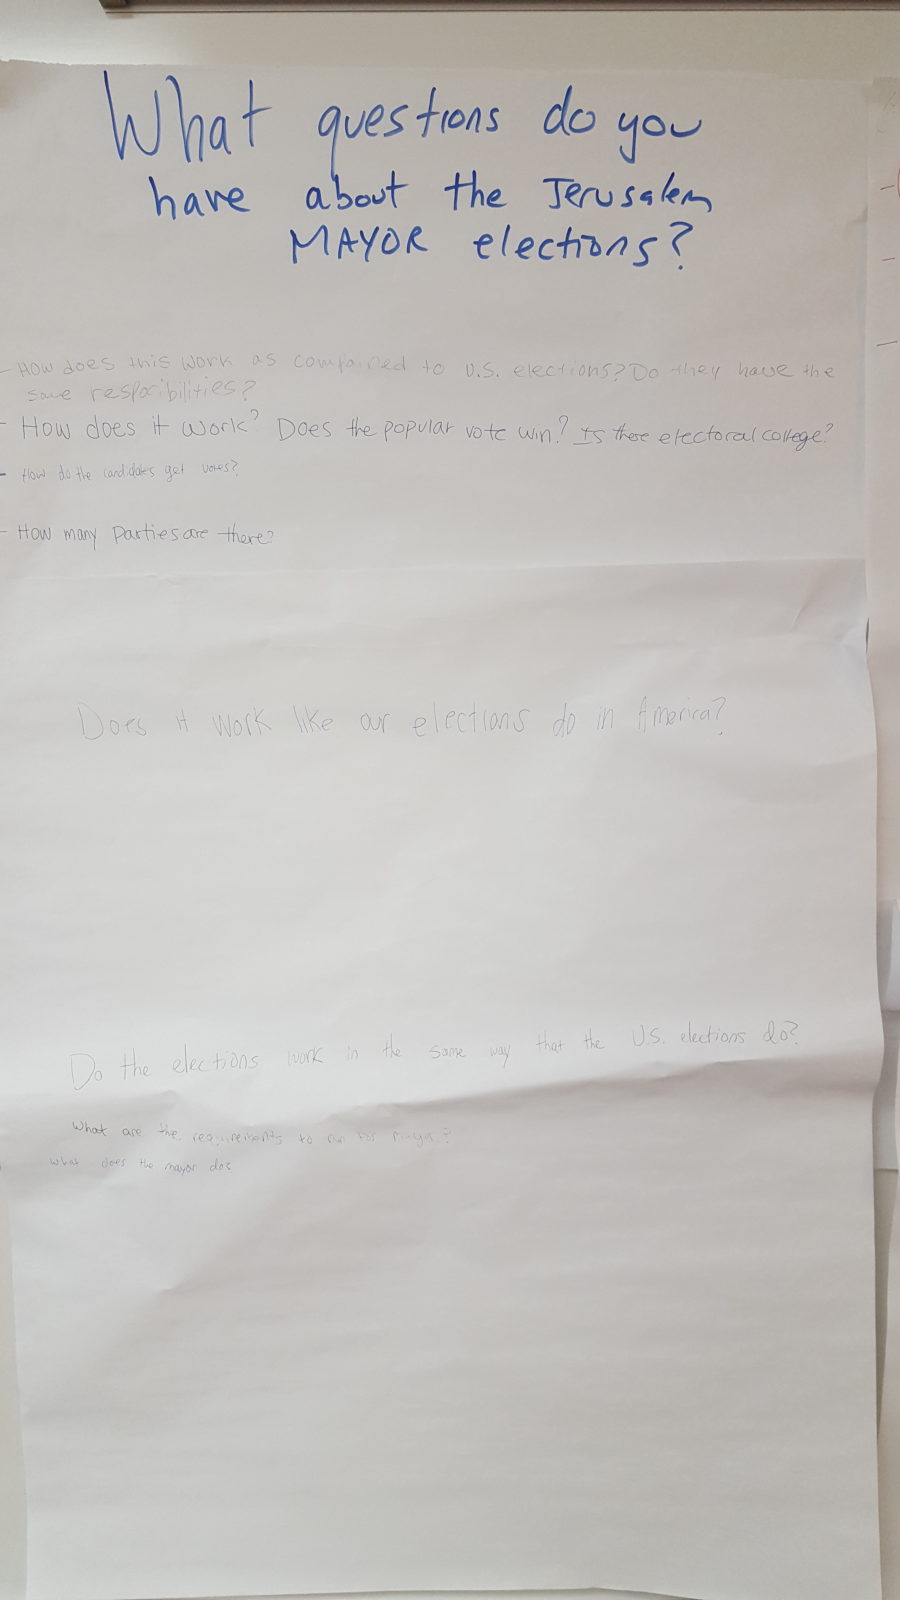 What questions do you
have about the Jerusalem
MAYOR elections?
- How does this work as compained to U.S. elections? Do they have the
same resposibilities?
- How does it work? Does the popular vote win? Is there electoral college?
- How do the candidates get votes?
- How many Parties are there?
Does it work like our elections do in America?
Do the elections work in the same way that the U.S. elections do?
What are the requirements to run for mayor?
what does the mayor do